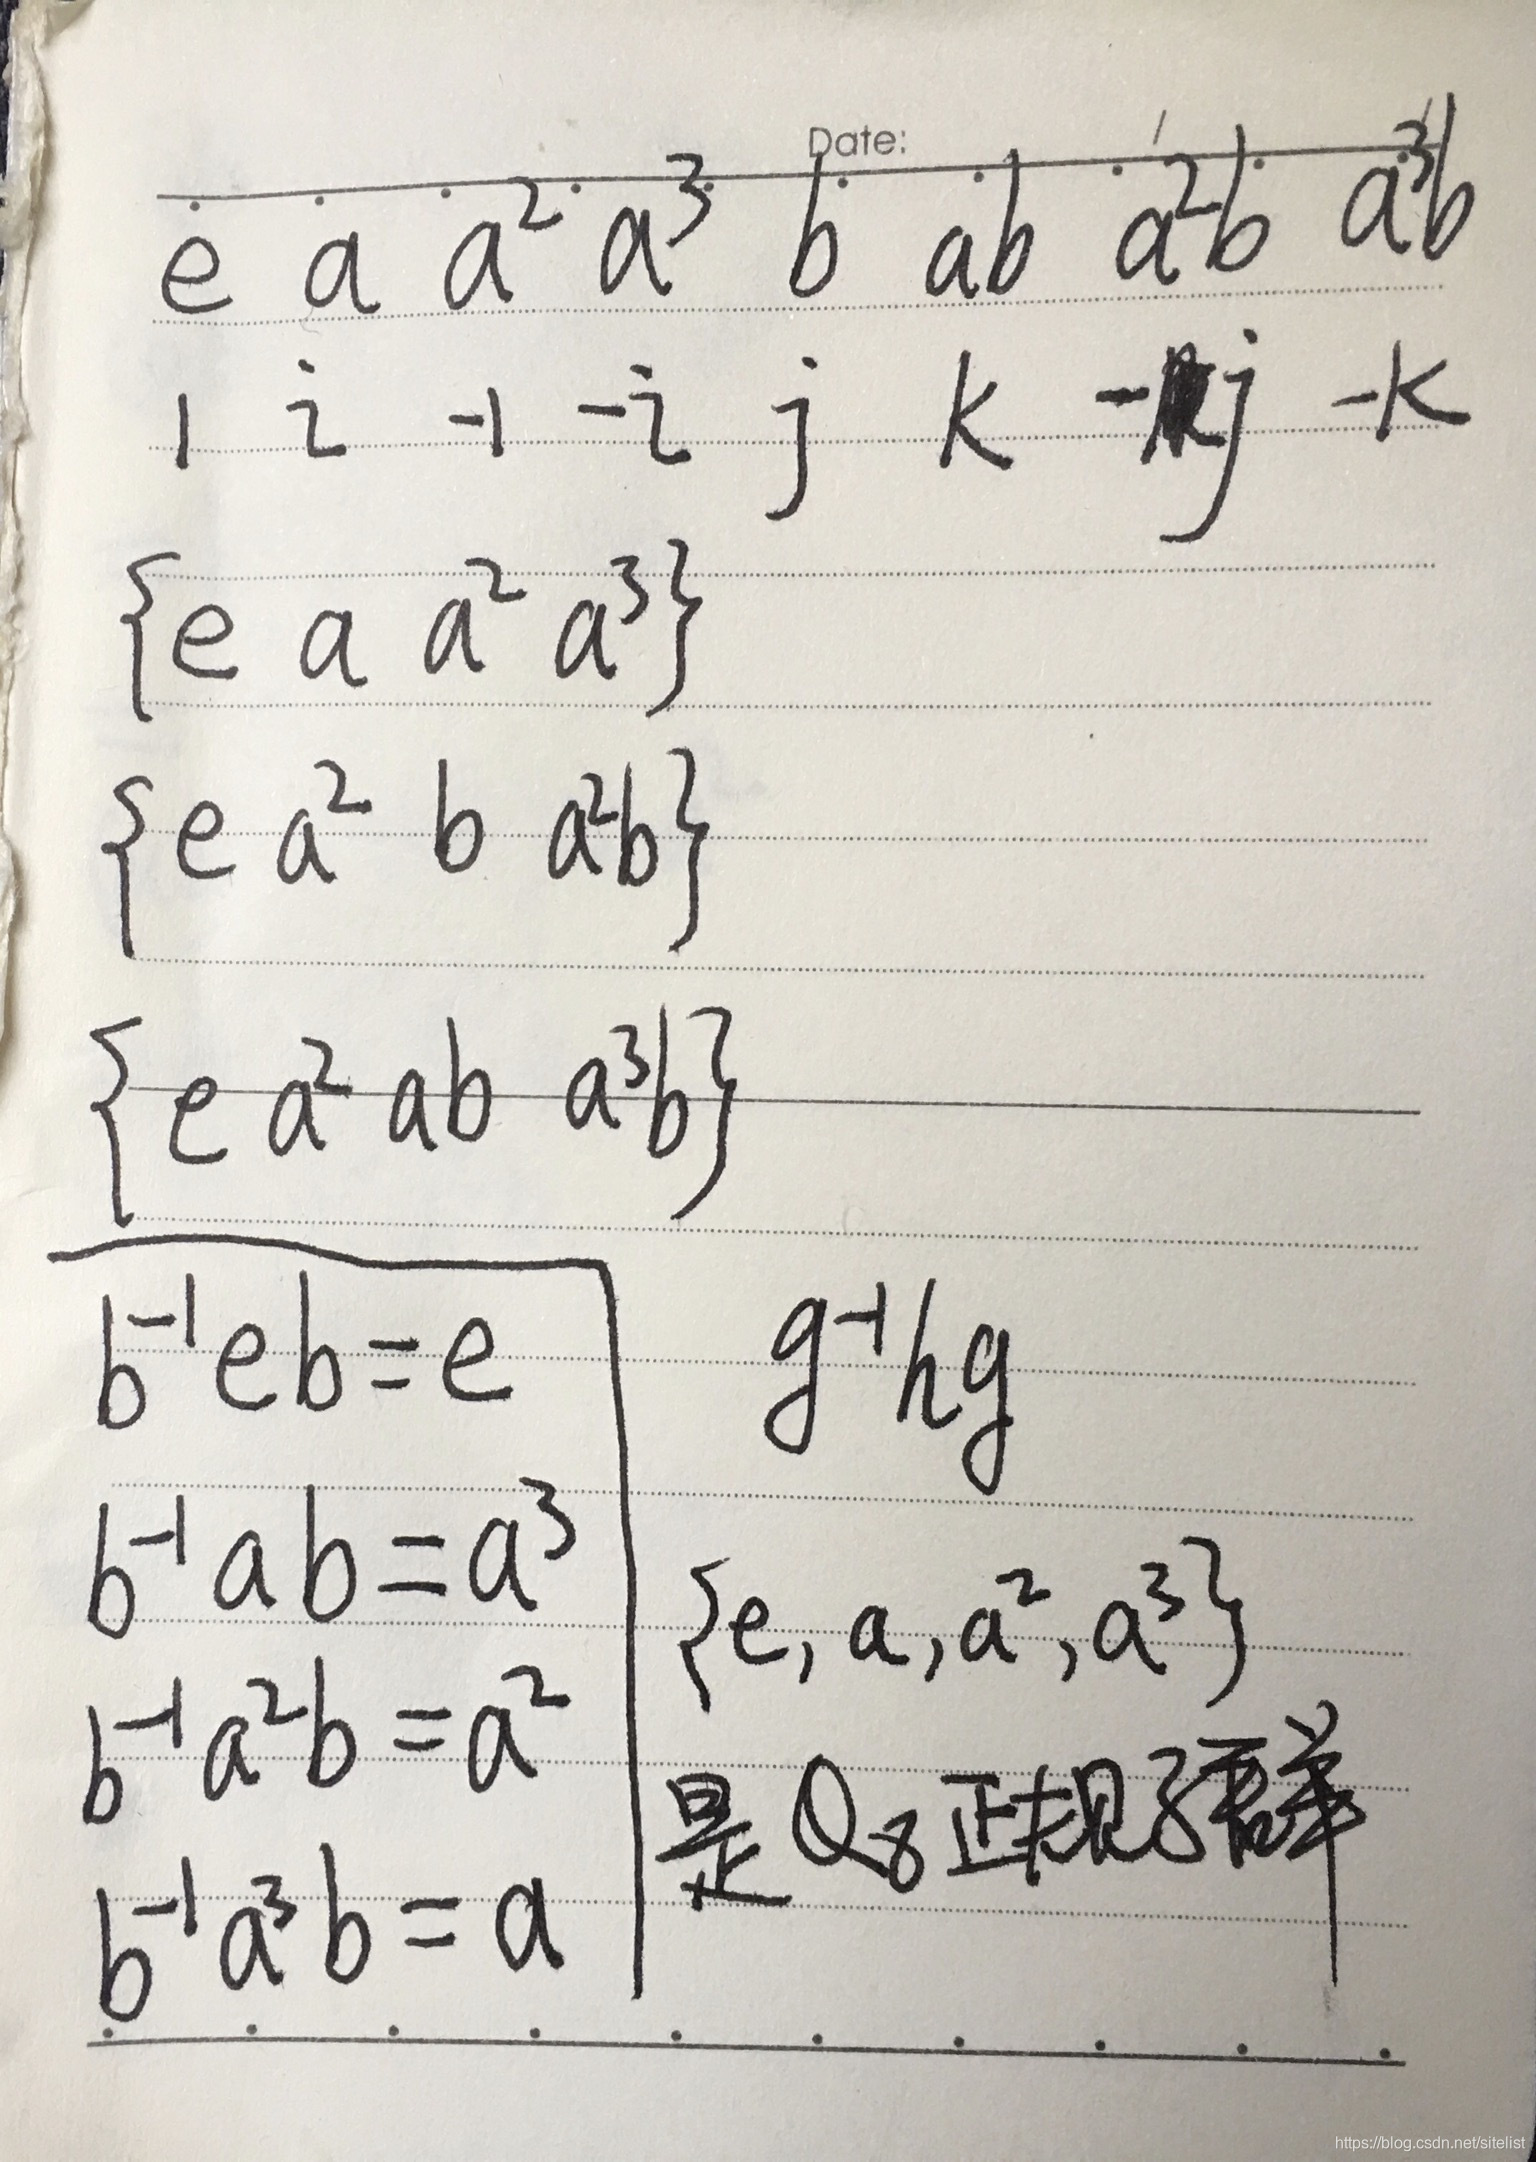 Date:
e a a² a³ b ab a²b a³b
1 i -1 -i j k -j -k
{e a a² a³}
{e a² b a²b}
{e a² ab a³b}
b⁻¹eb=e
b⁻¹ab=a³
b⁻¹a²b=a²
b⁻¹a³b=a
g⁻¹hg
{e,a,a²,a³}
是Q₈正规子群
https://blog.csdn.net/sitelist